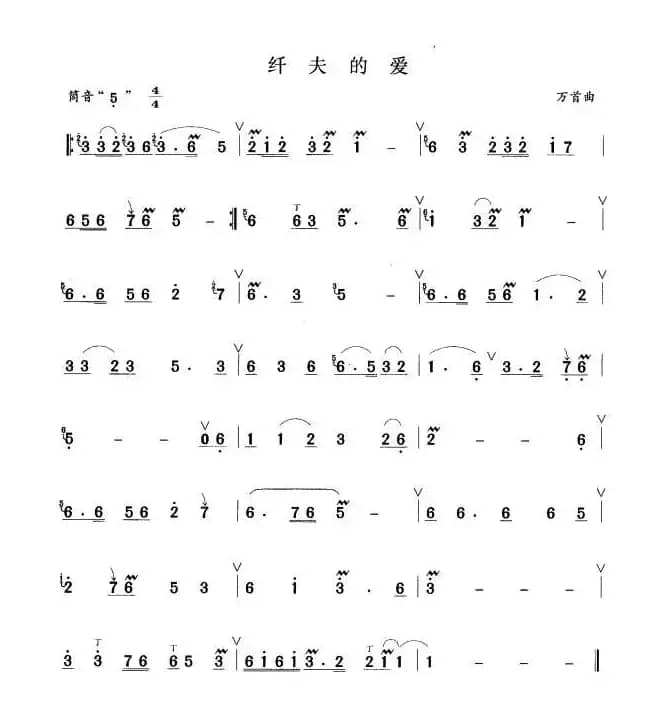 纤夫的爱
筒音“5̣” 4/4 万首曲
‖: 3̇ 3̇ 2̇ 3̇ 6 3̇ . 6 5 | 2̇ 1̇ 2̇ 3̇ 2̇ 1̇ – | 6 3̇ 2̇ 3̇ 2̇ 1̇ 7 |
6 5 6 7 6 5 – :‖ 6 6 3 5 . 6 | 1̇ 3 2 1 – |
6 . 6 5 6 2̇ 7 | 6 . 3 5 – | 6 . 6 5 6 1 . 2 |
3 3 2 3 5 . 3 | 6 3 6 6 . 5 3 2 | 1 . 6̣ 3 . 2 7̣ 6̣ |
5̣ – – 0 6̣ | 1 1 2 3 2 6̣ | 2 – – 6̣ |
6 . 6 5 6 2̇ 7 | 6 . 7 6 5 – | 6 6 . 6 6 5 |
2̇ 7 6 5 3 | 6 1̇ 3̇ . 6 | 3̇ – – – |
3̇ 3̇ 7 6 6 5 3̇ | 6 1̇ 6 1̇ 3̇ . 2 2̇ 1̇ 1 | 1 – – – ‖